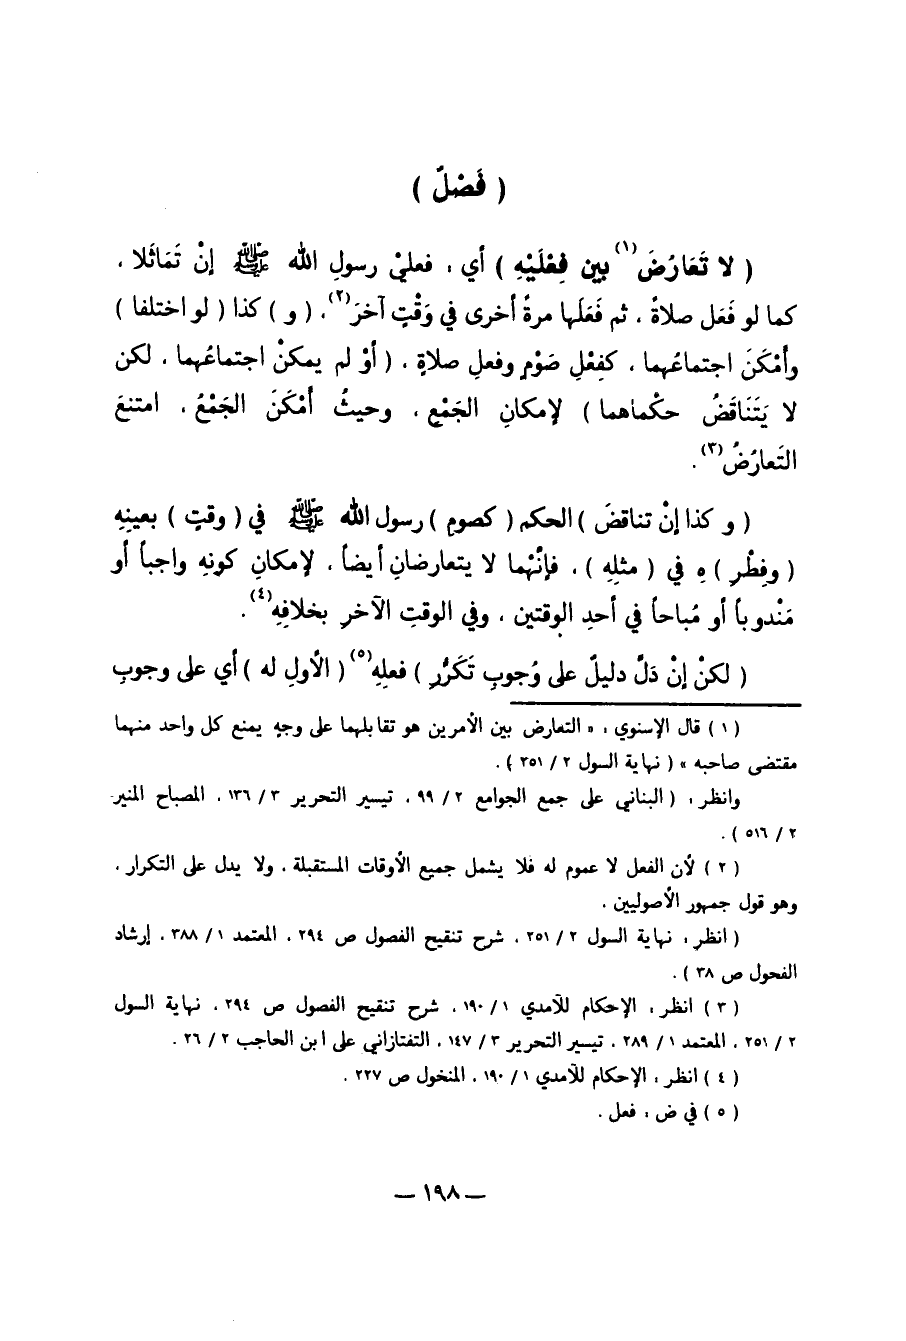 ( فَصْلٌ )
( لا تَعَارُضَ(١) بين فِعْلَيْهِ ) أي ، فعليْ رسولِ الله ﷺ إنْ تَمَاثَلا ،
كما لو فَعَل صلاةً ، ثم فَعَلَها مرةً أخرى في وَقْتٍ آخرَ(٢) ، ( و ) كذا ( لو اختلفا )
وأمْكَنَ اجتماعُهما ، كفِعْلِ صَوْمٍ وفعلِ صلاةٍ ، ( أوْ لم يمكنْ اجتماعُهما ، لكن
لا يَتَنَاقَضُ حكْماهما ) لإمكانِ الجَمْعِ ، وحيثُ أمْكَنَ الجَمْعُ ، امتنعَ
التَعارُضُ(٣) .
( و كذا إنْ تناقضَ ) الحكم ( كصومِ ) رسول الله ﷺ في ( وقتٍ ) بعينِهِ
( وفِطْرِ ) هِ في ( مثلِهِ ) ، فإنَّهُما لا يتعارضانِ أيضاً ، لإمكانِ كونِهِ واجباً أو
مَنْدوباً أو مُباحاً في أحدِ الوقتين ، وفي الوقتِ الآخرِ بخلافِهِ(٤) .
( لكنْ إنْ دَلَّ دليلٌ على وُجوبِ تَكَرُّرِ ) فعلِهِ(٥) ( الأولِ له ) أي على وجوبِ
( ١ ) قال الإسنوي : « التعارض بين الأمرين هو تقابلهما على وجه يمنع كل واحد منهما
مقتضى صاحبه » ( نهاية السول ٢ / ٢٥١ ) .
وانظر : ( البناني على جمع الجوامع ٢ / ٩٩ ، تيسير التحرير ٣ / ١٣٦ ، المصباح المنير
٢ / ٥١٦ ) .
( ٢ ) لأن الفعل لا عموم له فلا يشمل جميع الأوقات المستقبلة ، ولا يدل على التكرار ،
وهو قول جمهور الأصوليين .
( انظر : نهاية السول ٢ / ٢٥١ ، شرح تنقيح الفصول ص ٢٩٤ ، المعتمد ١ / ٣٨٨ ، إرشاد
الفحول ص ٣٨ ) .
( ٣ ) انظر : الإحكام للآمدي ١ / ١٩٠ ، شرح تنقيح الفصول ص ٢٩٤ ، نهاية السول
٢ / ٢٥١ ، المعتمد ١ / ٢٨٩ ، تيسير التحرير ٣ / ١٤٧ ، التفتازاني على ابن الحاجب ٢ / ٢٦ .
( ٤ ) انظر : الإحكام للآمدي ١ / ١٩٠ ، المنخول ص ٢٢٧ .
( ٥ ) في ض : فعل .
— ١٩٨ —